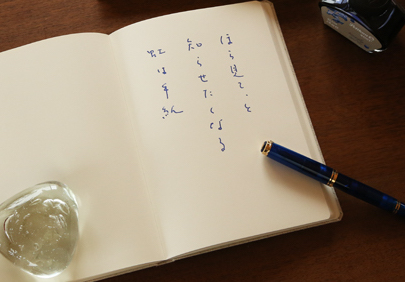 ほら見て、と
知らせたくなる
虹は